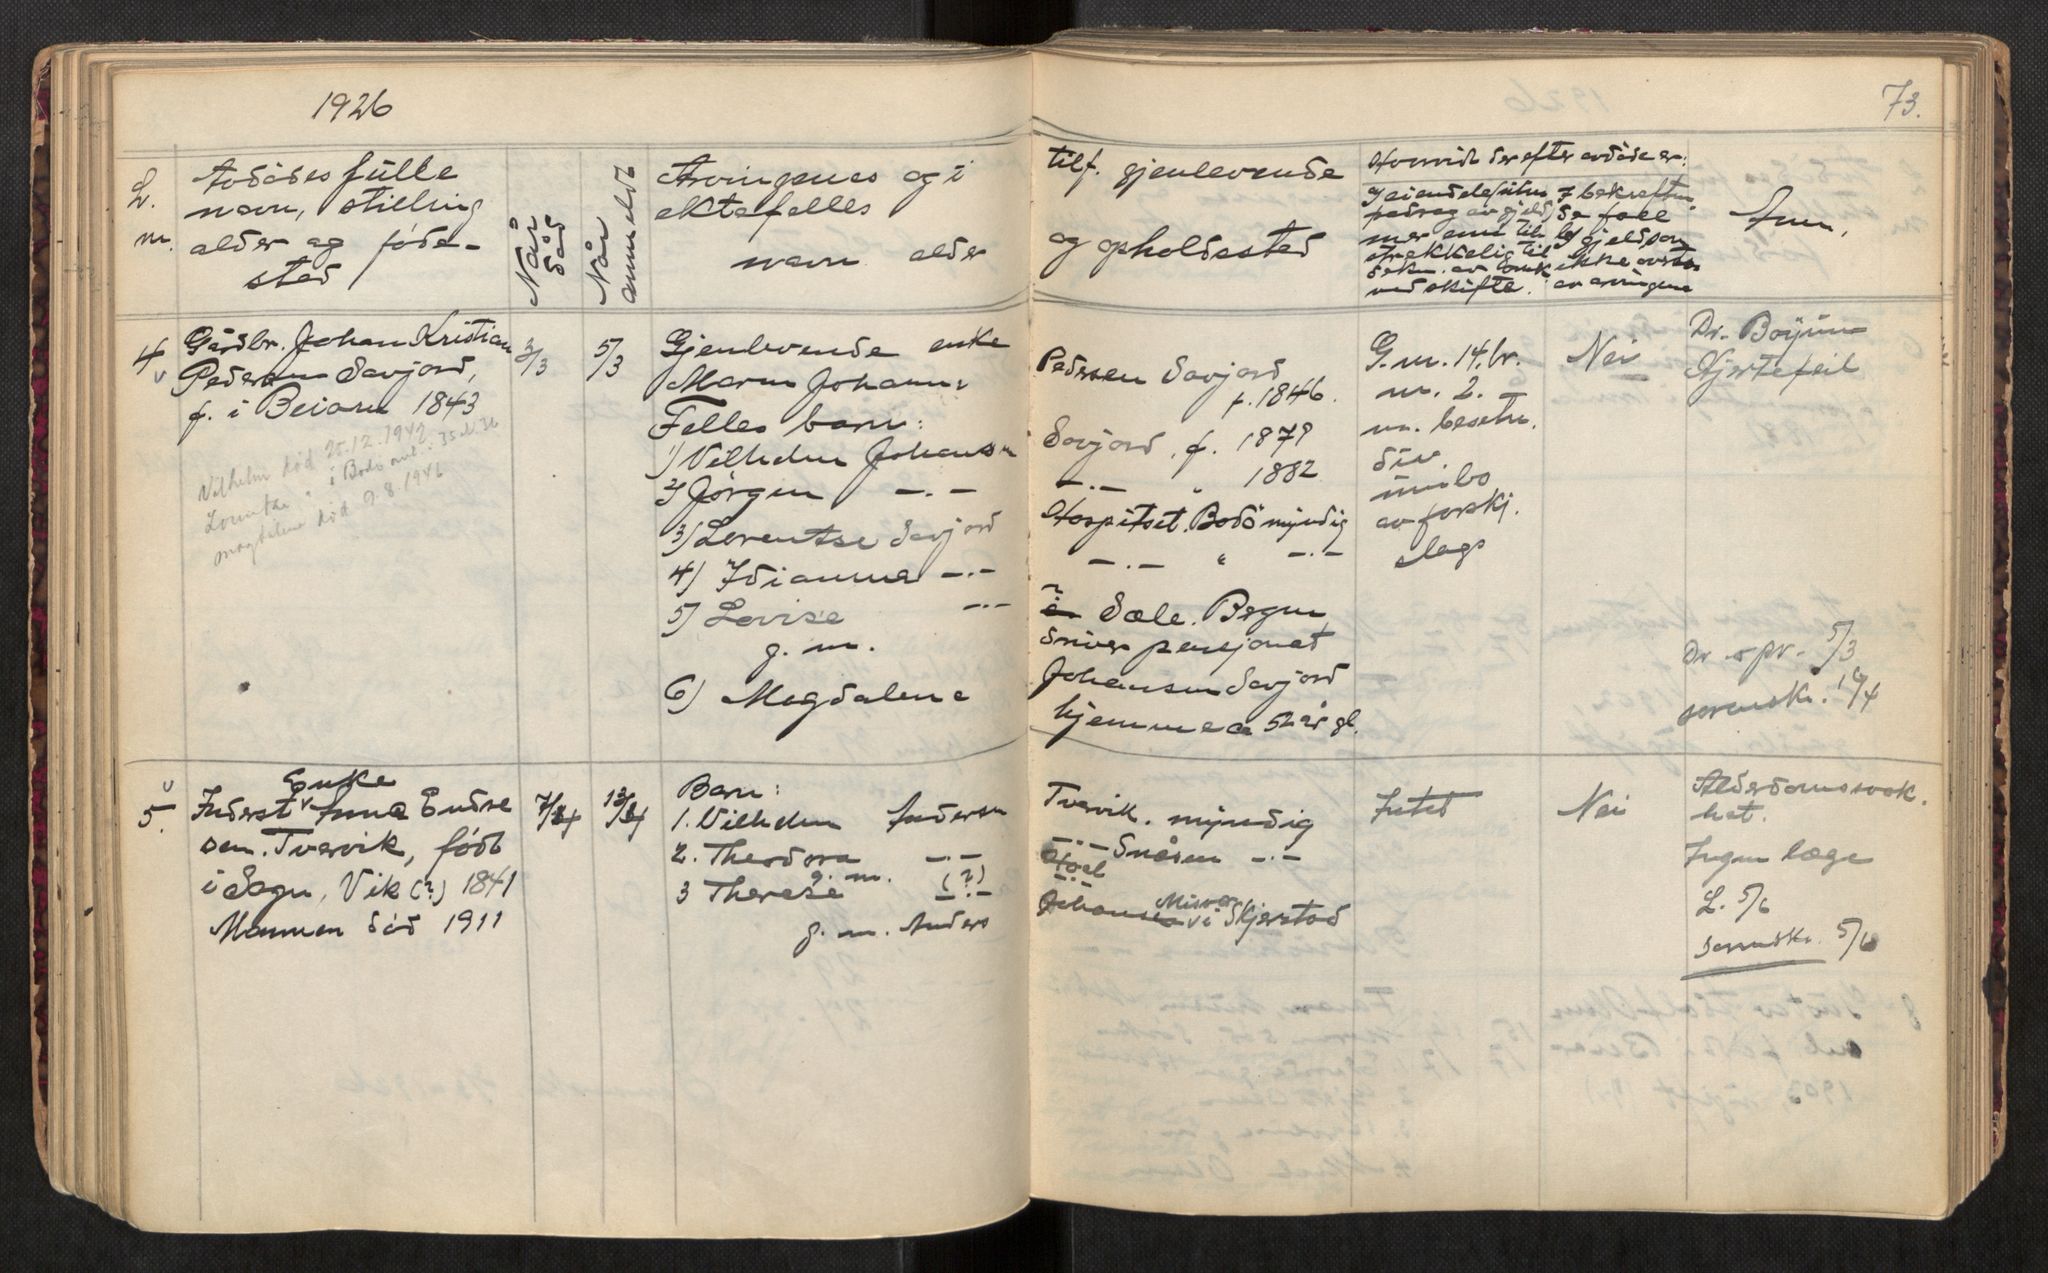 1926
73.
L.
nr.
Avdødes fulle
navn, stilling
alder og føde-
sted
Når
død
Når
anmeldt
Arvingenes og i
ektefelles
navn alder
tilf. gjenlevende
og opholdssted
Hvorvidt der efter avdøde er:
Anm.
4
Gårdbr. Johan Kristian
Pedersen Savjord,
f. i Beiarn 1843
3/3
5/3
Vilhelm död 25.12.1942
i Bodö
Magdalene död 9.8.1946
Gjenlevende enke
Maren Johanne
Felles barn:
1) Vilhelm Johansen
2) Jørgen -.-
3) Lorentse Savjord
4) Idianna -.-
5) Lovise -.-
g. m.
6) Magdalene
Pedersen Savjord
f. 1846.
Savjord, f. 1879
-.- " 1882
Hospitset. Bodö myndig
-.- " -.-
Sæle. Bergen
driver pensjonat
Johansen Savjord
hjemme ca 52 år gl.
G. nr. 14. br.
nr. 2.
m. besetn.
div.
innbo
av forskj.
slags
Nei
Dr. Boyum
Hjertefeil
Dr. spr. 5/3
sorenskr. 19/4
5.
Enke
Inderst Anna Endre
sen. Tvervik, født
i Sogn, Vik (?) 1841
Mannen död 1911
7/4
13/4
Barn:
1. Vilhelm Andersen
2. Theodora -.-
g. m.
3 Therese (?)
g. m. Anders
Tvervik. myndig
-.- Snåsen -.-
Misvær
Johansen i Skjerstad
Intet
Nei
Alderdomssvak.
het.
Ingen læge
L. 5/6
sorenskr. 5/6